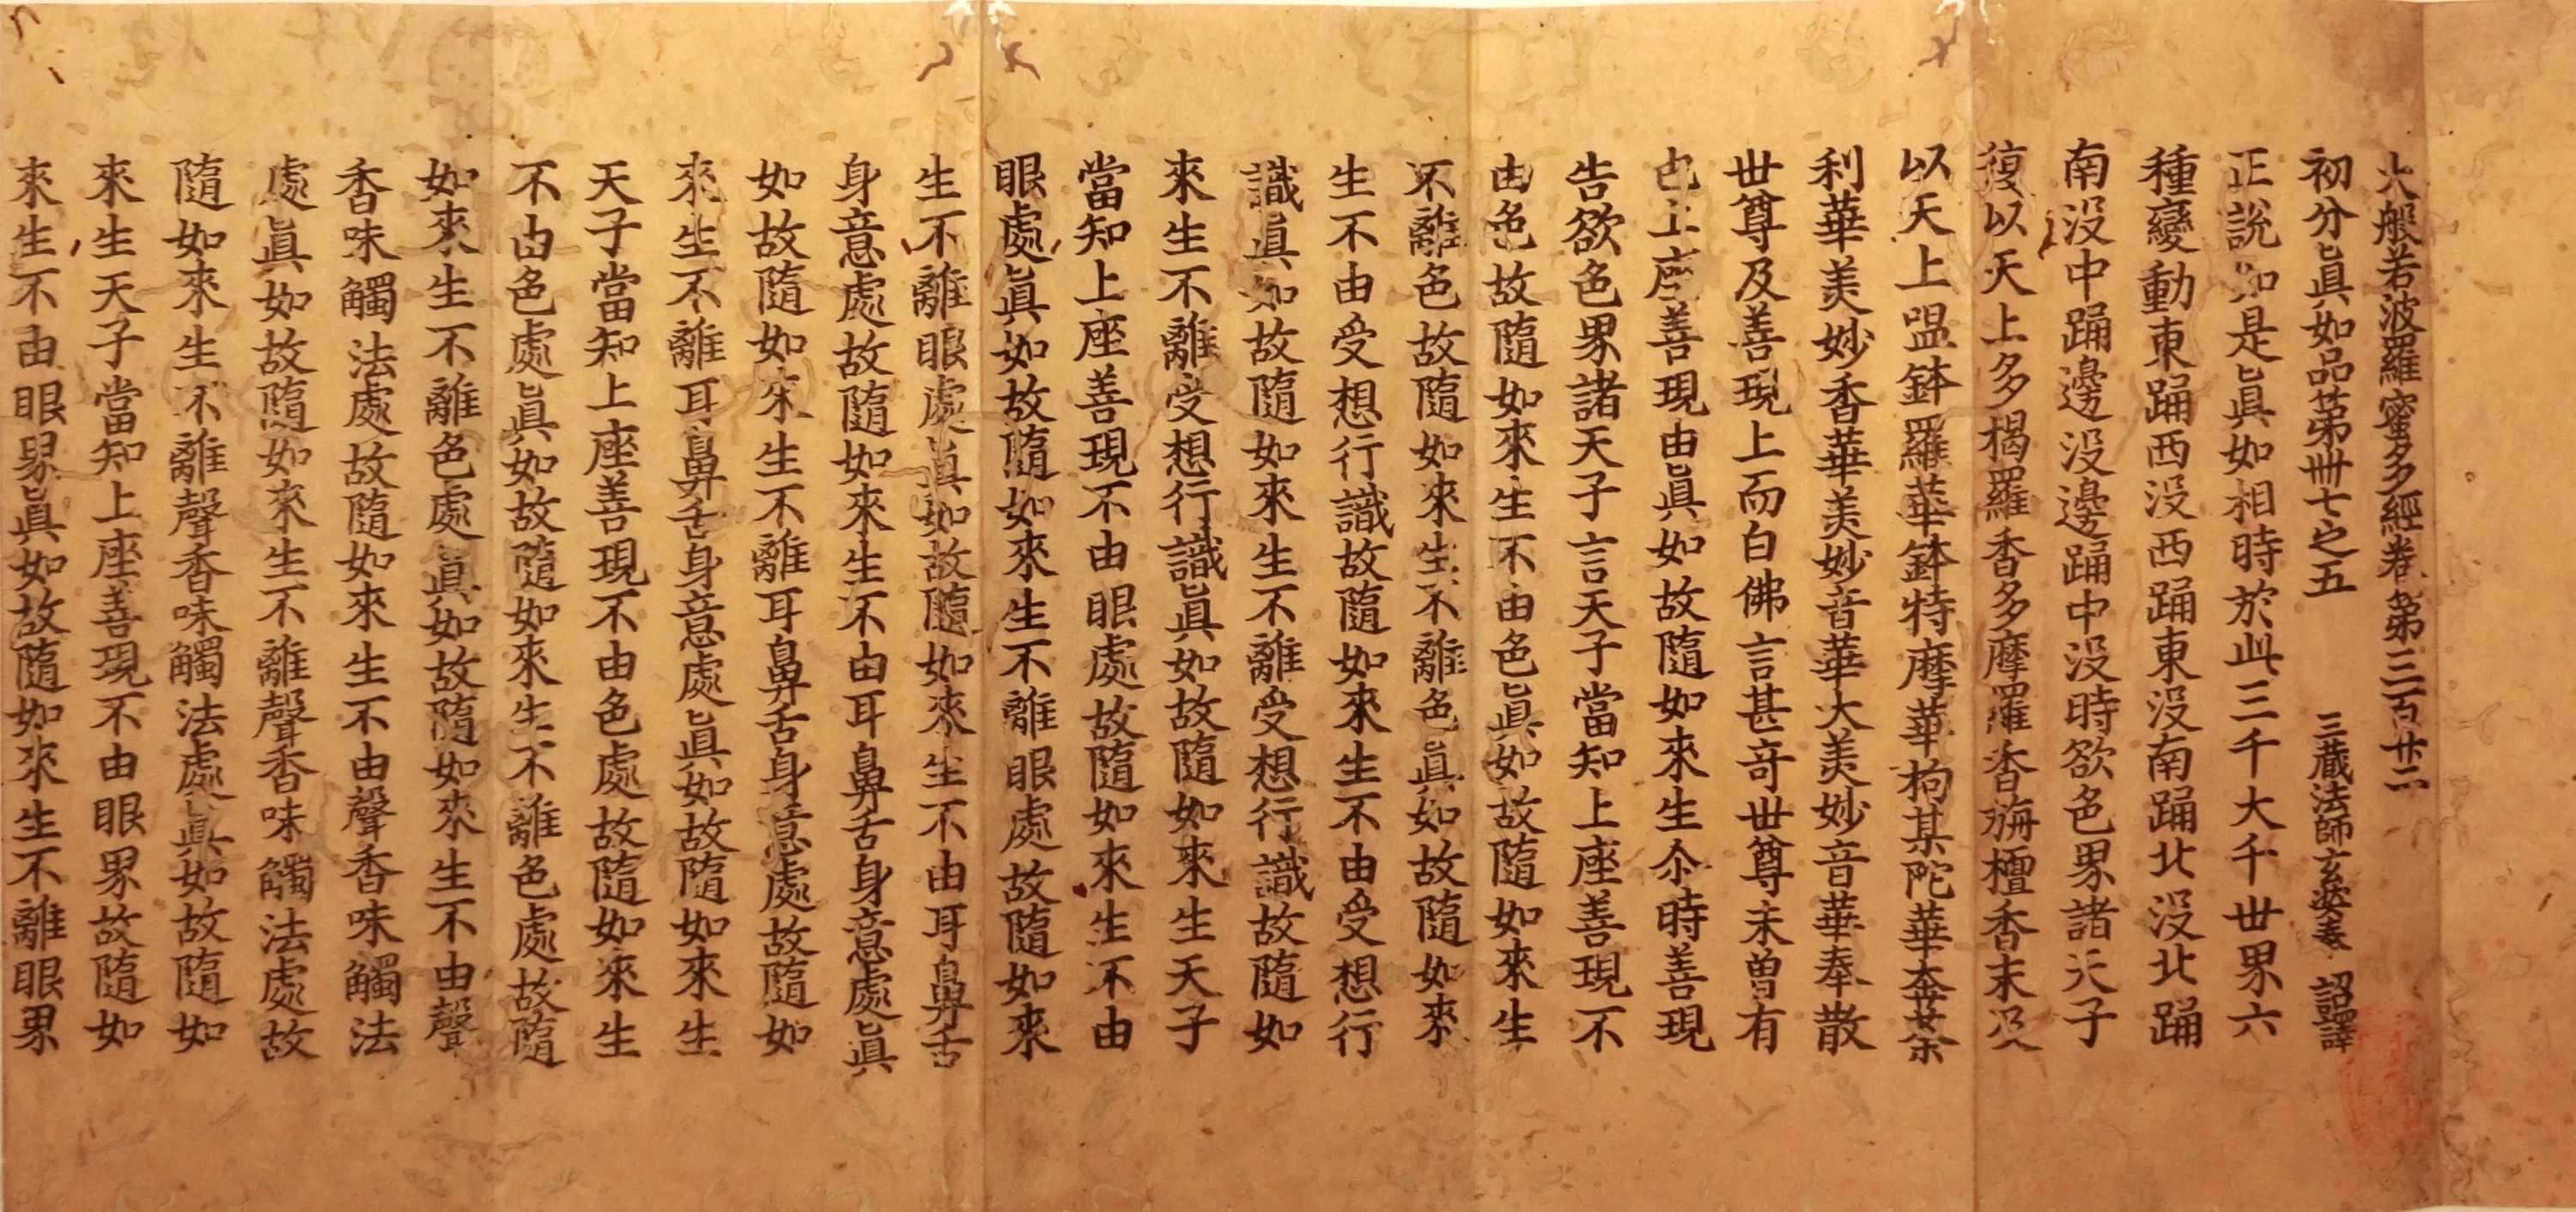 大般若波羅蜜多經卷第三百廿二
初分眞如品第卌七之五　三藏法師玄奘奉　詔譯
正說如是眞如相時於此三千大千世界六
種變動東踊西没西踊東没南踊北没北踊
南没中踊邊没邊踊中没時欲色界諸天子
復以天上多揭羅香多摩羅香旃檀香末及
以天上嗢鉢羅華鉢特摩華拘某陀華奔荼
利華美妙香華美妙音華大美妙音華奉散
世尊及善現上而白佛言甚奇世尊未曾有
也上座善現由眞如故隨如來生尒時善現
告欲色界諸天子言天子當知上座善現不
由色故隨如來生不由色眞如故隨如來生
不離色故隨如來生不離色眞如故隨如來
生不由受想行識故隨如來生不由受想行
識眞如故隨如來生不離受想行識故隨如
來生不離受想行識眞如故隨如來生天子
當知上座善現不由眼處故隨如來生不由
眼處眞如故隨如來生不離眼處故隨如來
生不離眼處眞如故隨如來生不由耳鼻舌
身意處故隨如來生不由耳鼻舌身意處眞
如故隨如來生不離耳鼻舌身意處故隨如
來生不離耳鼻舌身意處眞如故隨如來生
天子當知上座善現不由色處故隨如來生
不由色處眞如故隨如來生不離色處故隨
如來生不離色處眞如故隨如來生不由聲
香味觸法處故隨如來生不由聲香味觸法
處眞如故隨如來生不離聲香味觸法處故
隨如來生不離聲香味觸法處眞如故隨如
來生天子當知上座善現不由眼界故隨如
來生不由眼界眞如故隨如來生不離眼界